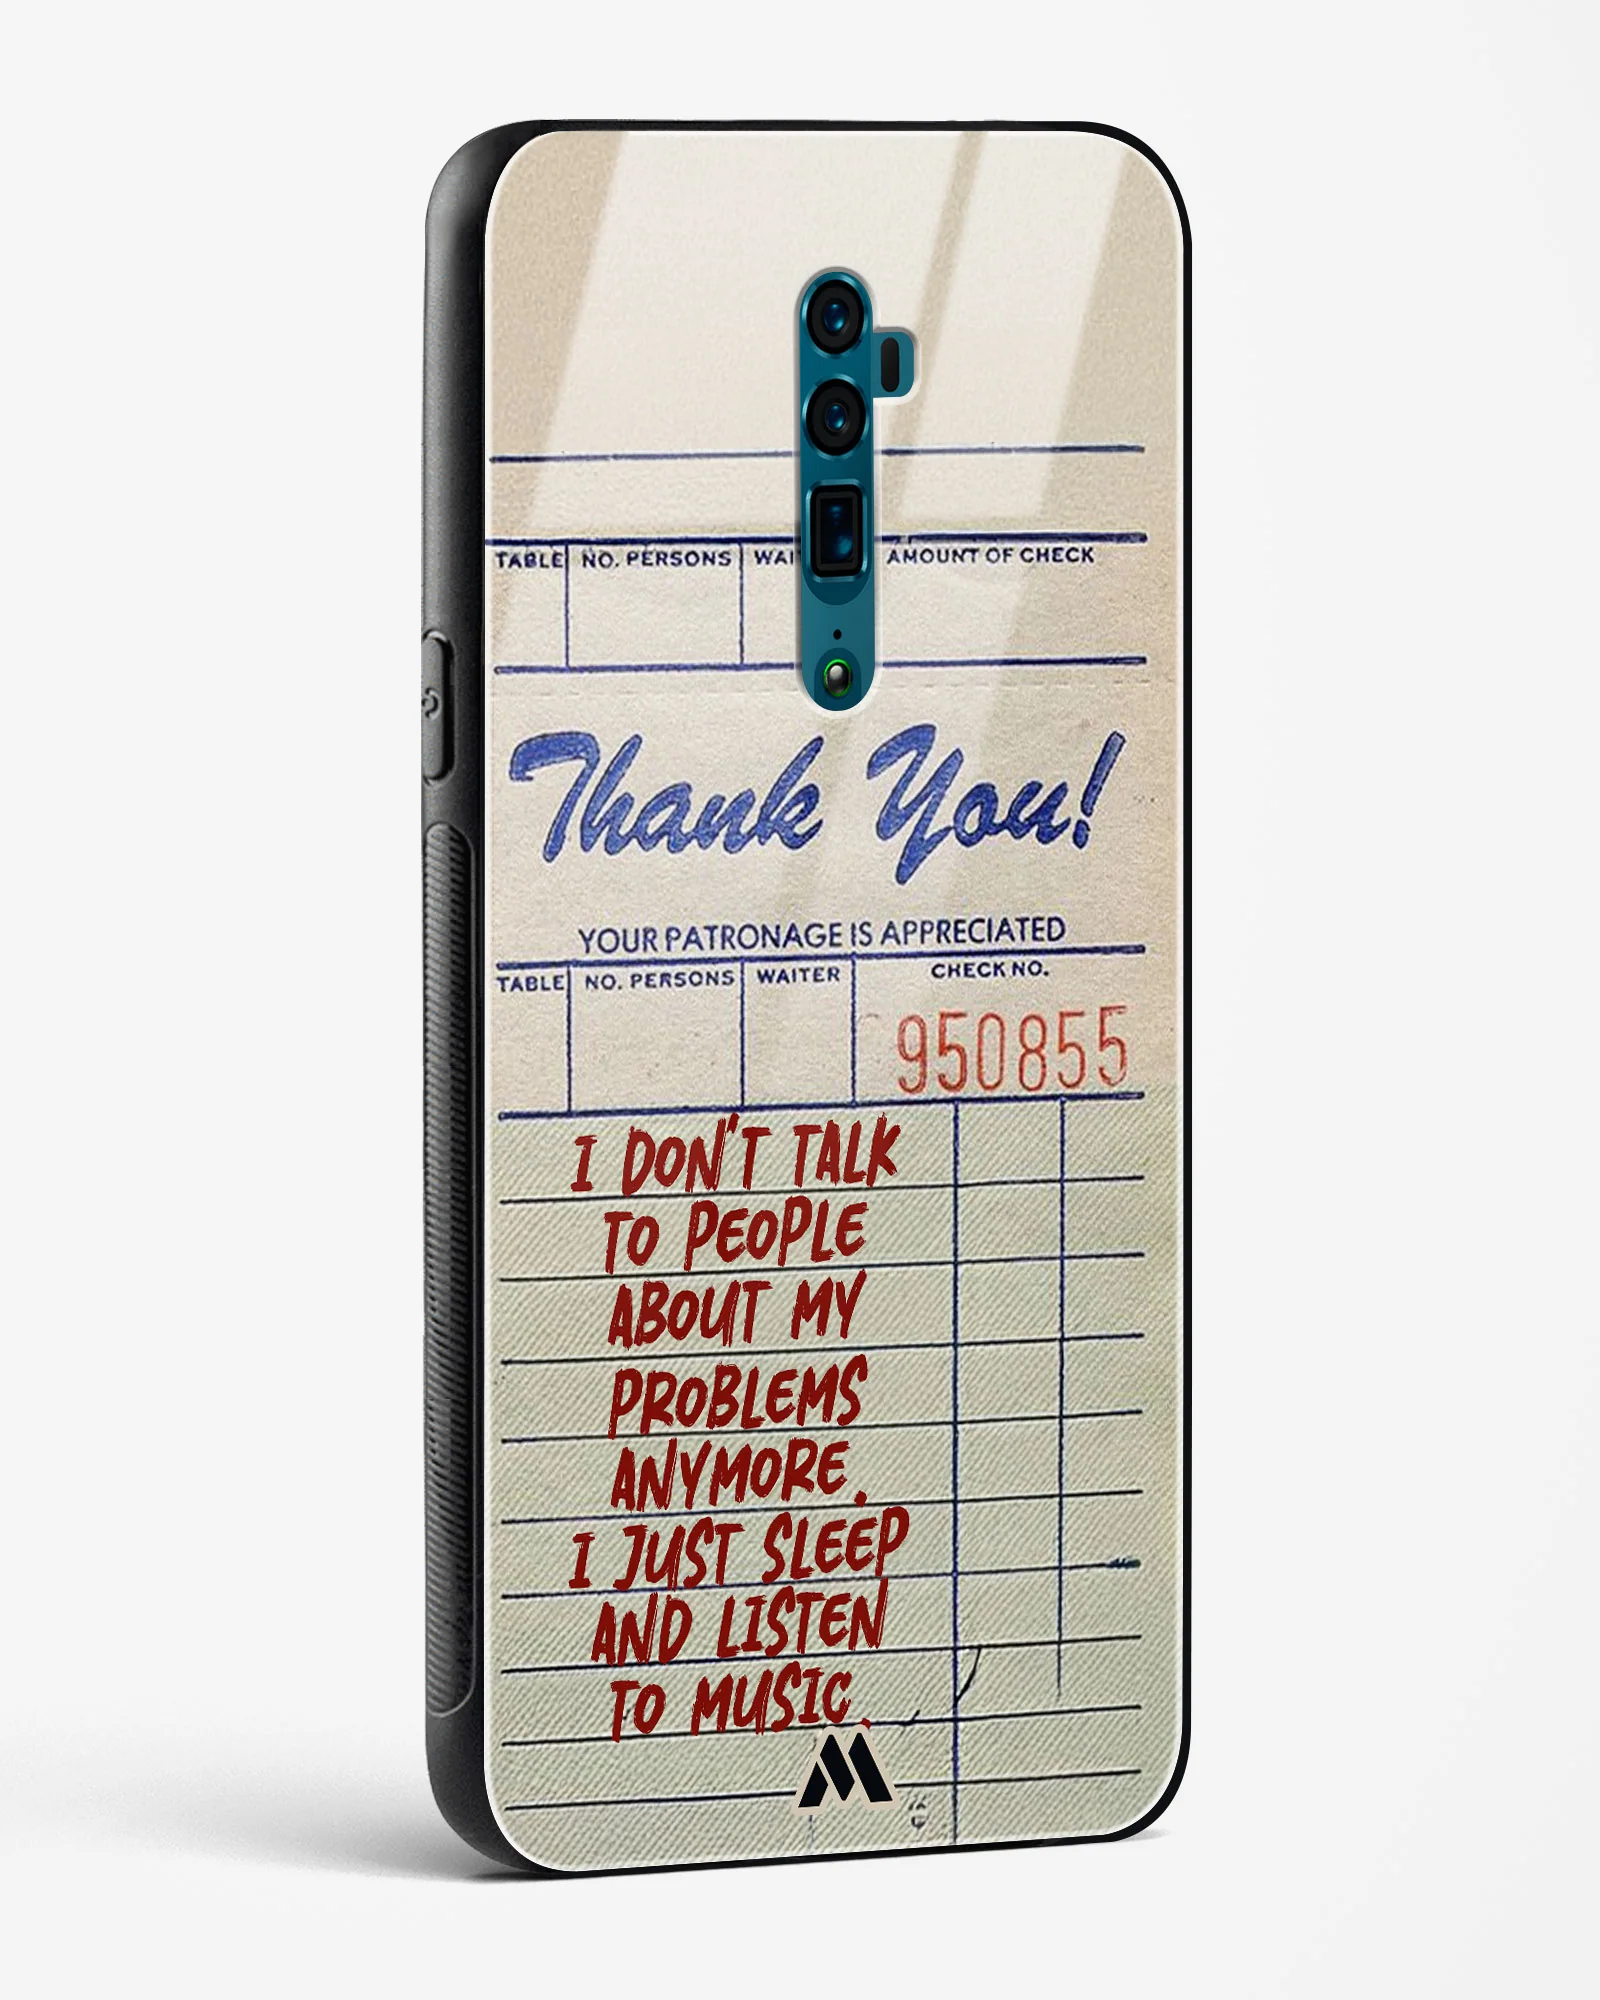 TABLE NO. PERSONS WAI AMOUNT OF CHECK
Thank You!
YOUR PATRONAGE IS APPRECIATED
TABLE NO. PERSONS WAITER CHECK NO.
950855
I DON'T TALK
TO PEOPLE
ABOUT MY
PROBLEMS
ANYMORE.
I JUST SLEEP
AND LISTEN
TO MUSIC.